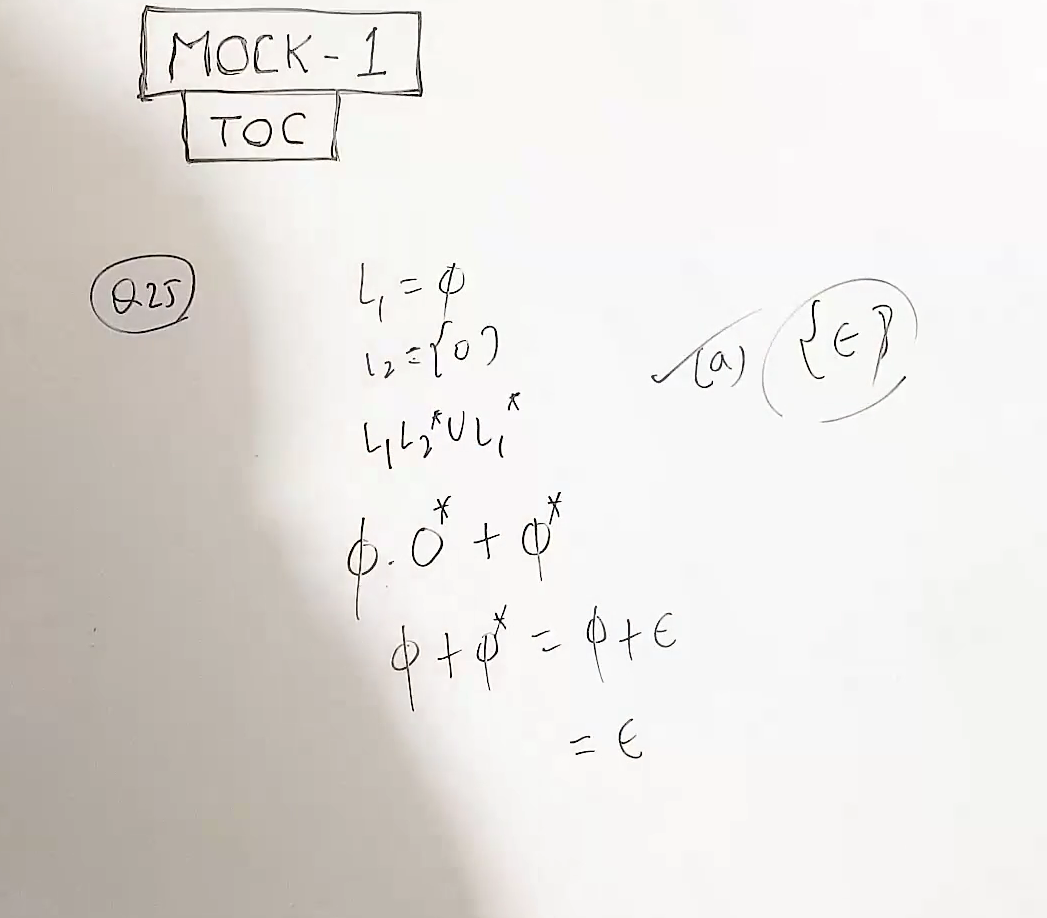 MOCK - 1
TOC
Q25
L₁ = ϕ
L₂ = {0}
L₁L₂* ∪ L₁*
(a) {ϵ}
ϕ . 0* + ϕ*
ϕ + ϕ* = ϕ + ϵ
= ϵ